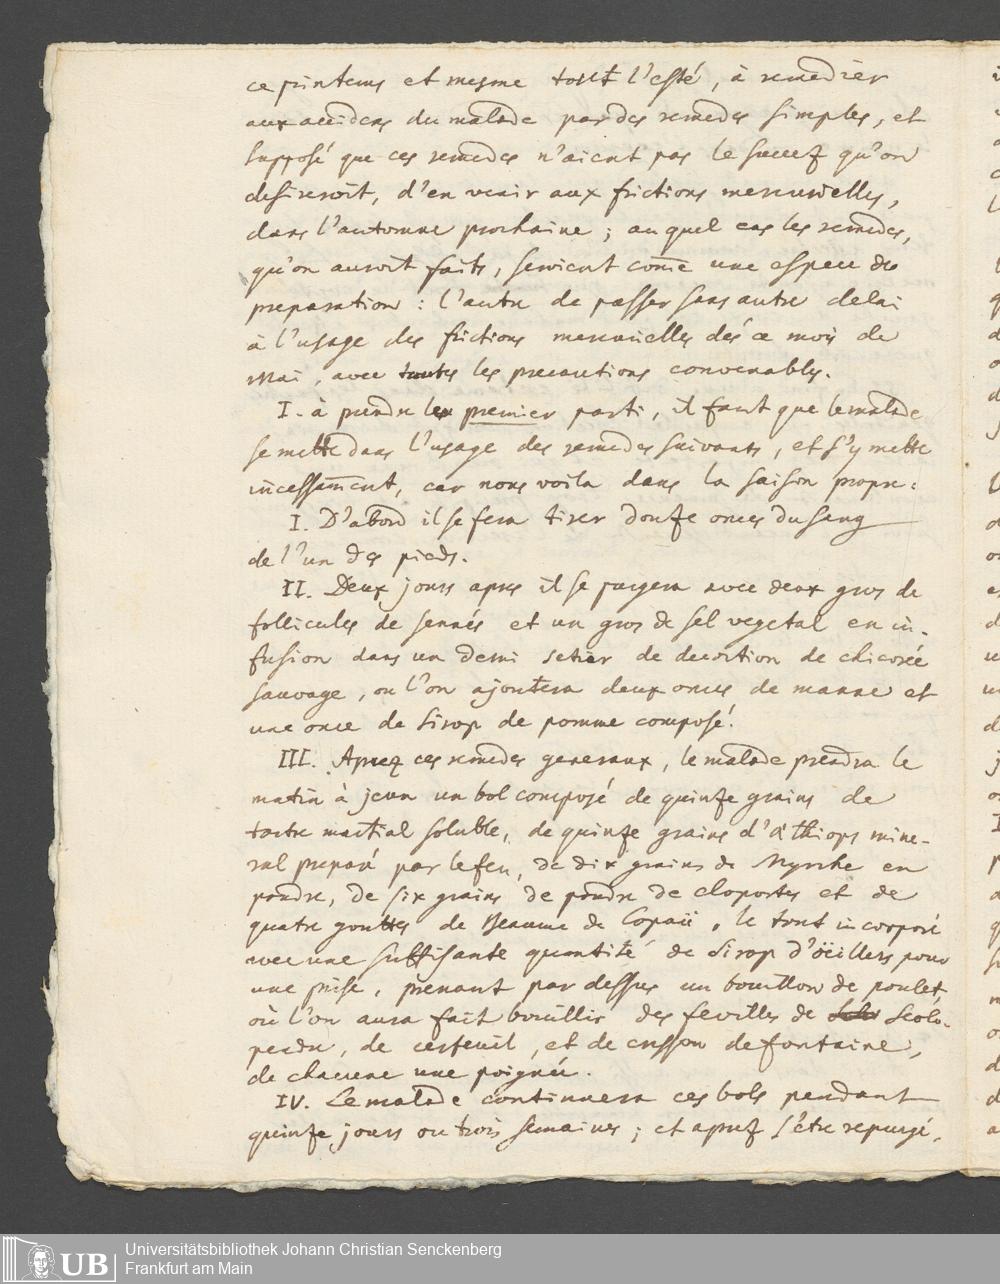 ce printems et mesme tout l'esté, à remedier
aux accidens du malade par des remedes simples, et
supposé que ces remedes n'aient pas le succez qu'on
desireroit, d'en venir aux frictions mercurielles,
dans l'automne prochaine ; au quel cas les remedes,
qu'on auroit faits, seroient come une espece de
preparation : l'autre de passer sans autre delai
à l'usage des frictions mercurielles dés ce mois de
Mai, avec toutes les precautions convenables.
I. à prendre le premier parti, il faut que le malade
se mette dans l'usage des remedes suivants, et s'y mette
incessament, car nous voila dans la saison propre.
I. D'abord il se fera tirer douze onces du sang
de l'un des pieds.
II. Deux jours apres il se purgera avec deux gros de
follicules de sennés et un gros de sel vegetal en in-
fusion dans un demi setier de decoction de chicorée
sauvage, ou l'on ajoutera deux onces de manne et
une once de sirop de pomme composé.
III. Aprez ces remedes generaux, le malade prendra le
matin à jeun un bol composé de quinze grains de
tartre martial soluble, de quinze grains d'æthiops mine-
ral preparé par le feu, de dix grains de Myrrhe en
poudre, de six grains de poudre de cloportes et de
quatre gouttes de Beaume de Copaü, le tout incorporé
avec une suffisante quantité de Sirop d'öeillets pour
une prise, prenant par dessus un bouillon de poulet,
où l'on aura fait bouillir des feuilles de Scolo-
pendre, de cerfeuil, et de cresson de fontaine,
de chacune une poignée.
IV. Le malade continuera ces bols pendant
quinze jours ou trois semaines ; et aprez s'être repurgé,
Universitätsbibliothek Johann Christian Senckenberg
Frankfurt am Main
UB